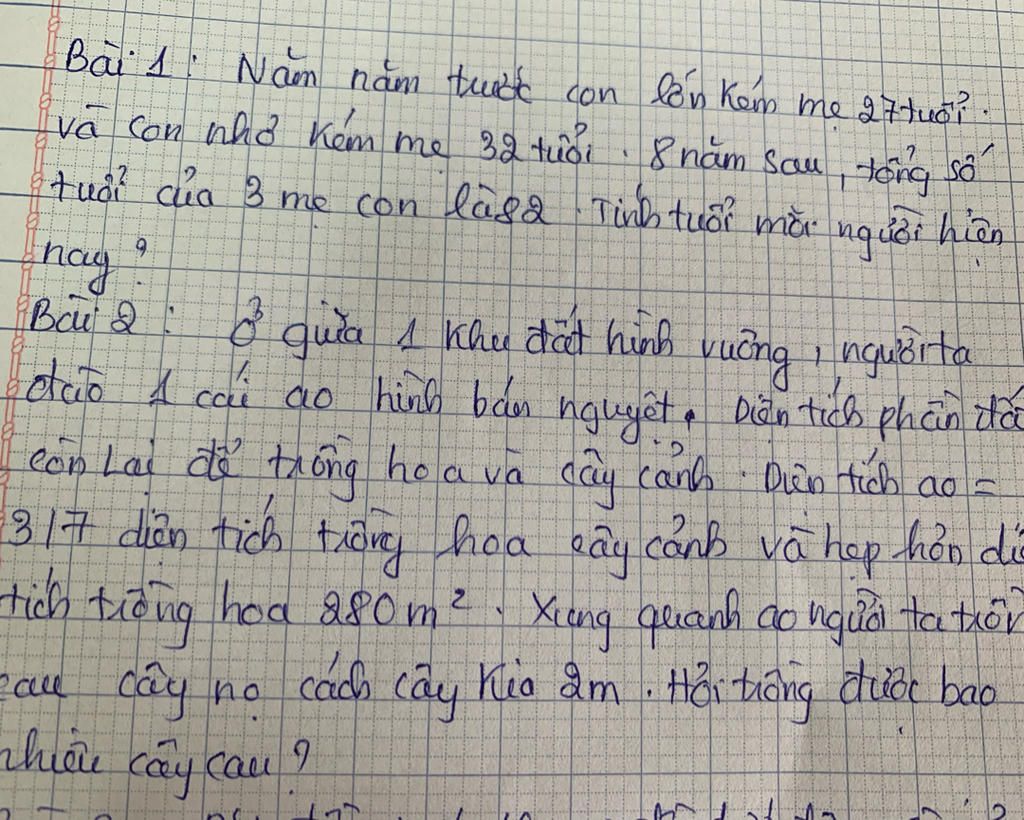 Bài 1: Năm năm trước con lớn kém mẹ 27 tuổi.
và con nhỏ kém mẹ 32 tuổi. 8 năm sau, tổng số
tuổi của 3 mẹ con là 82. Tính tuổi mỗi người hiện
nay?
Bài 2: Ở giữa 1 khu đất hình vuông, người ta
đào 1 cái ao hình bán nguyệt. Diện tích phần đấ
còn lại để trồng hoa và cây cảnh. Diện tích ao =
3/7 diện tích trồng hoa cây cảnh và hẹp hơn diệ
tích trồng hoa 280m². Xung quanh ao người ta trồn
cau cây nọ cách cây kia 2m. Hỏi trồng được bao
nhiêu cây cau?